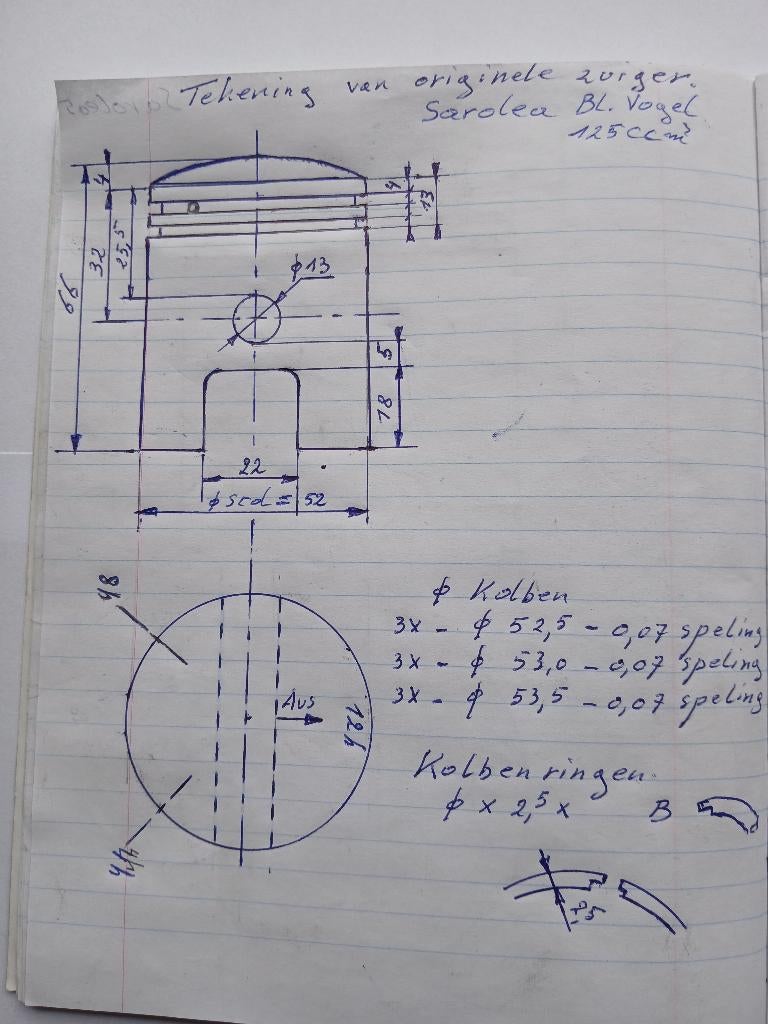 Tekening van originele zuiger.
Sarolea Bl. Vogel
125ccm³
4
4
13
25,5
32
66
ϕ13
5
18
22
ϕ std = 52
ϕ Kolben
3x - ϕ 52,5 - 0,07 speling
3x - ϕ 53,0 - 0,07 speling
3x - ϕ 53,5 - 0,07 speling
Aus
Kolbenringen
ϕ x 2,5 x B
2,5